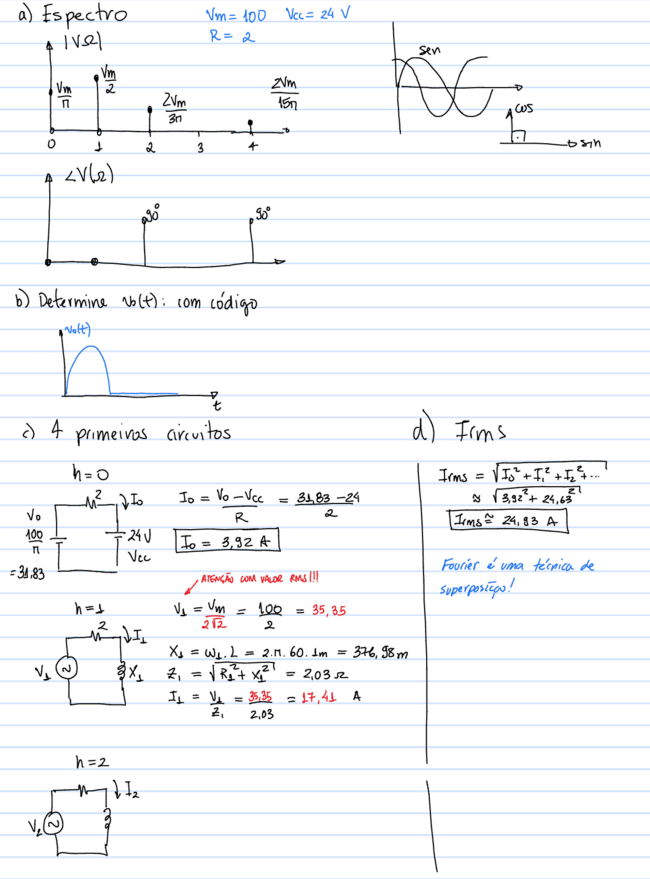 a) Espectro
Vm = 100 Vcc = 24 V
R = 2
|VΩ|
Vm/π
Vm/2
2Vm/3π
2Vm/15π
0 1 2 3 4
sen
cos
sin
∠V(Ω)
90°
90°
b) Determine vo(t): com código
vo(t)
t
c) 4 primeiros circuitos
h=0
2
Io
Vo
100/π
= 31,83
24V
Vcc
Io = Vo - Vcc / R = 31,83 - 24 / 2
Io = 3,92 A
ATENÇÃO COM VALOR RMS!!!
h=1
2
I1
V1
X1
V1 = Vm / 2√2 = 100 / 2 = 35,35
X1 = ω1.L = 2.π.60.1m = 376,98m
Z1 = √R1² + X1² = 2,03 Ω
I1 = V1 / Z1 = 35,35 / 2,03 = 17,41 A
h=2
I2
V2
d) Irms
Irms = √Io² + I1² + I2² + ...
≈ √3,92² + 24,63²
Irms ≅ 24,93 A
Fourier é uma técnica de
superposição!